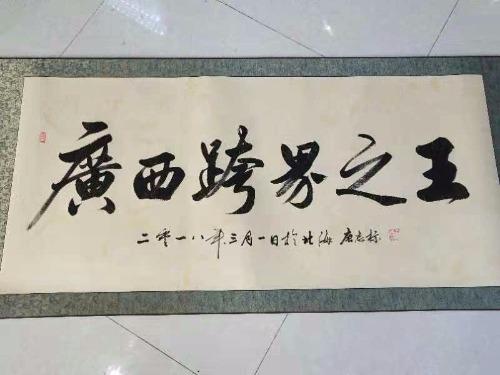 廣西跨界之王
二零一八年三月一日於北海 唐志标